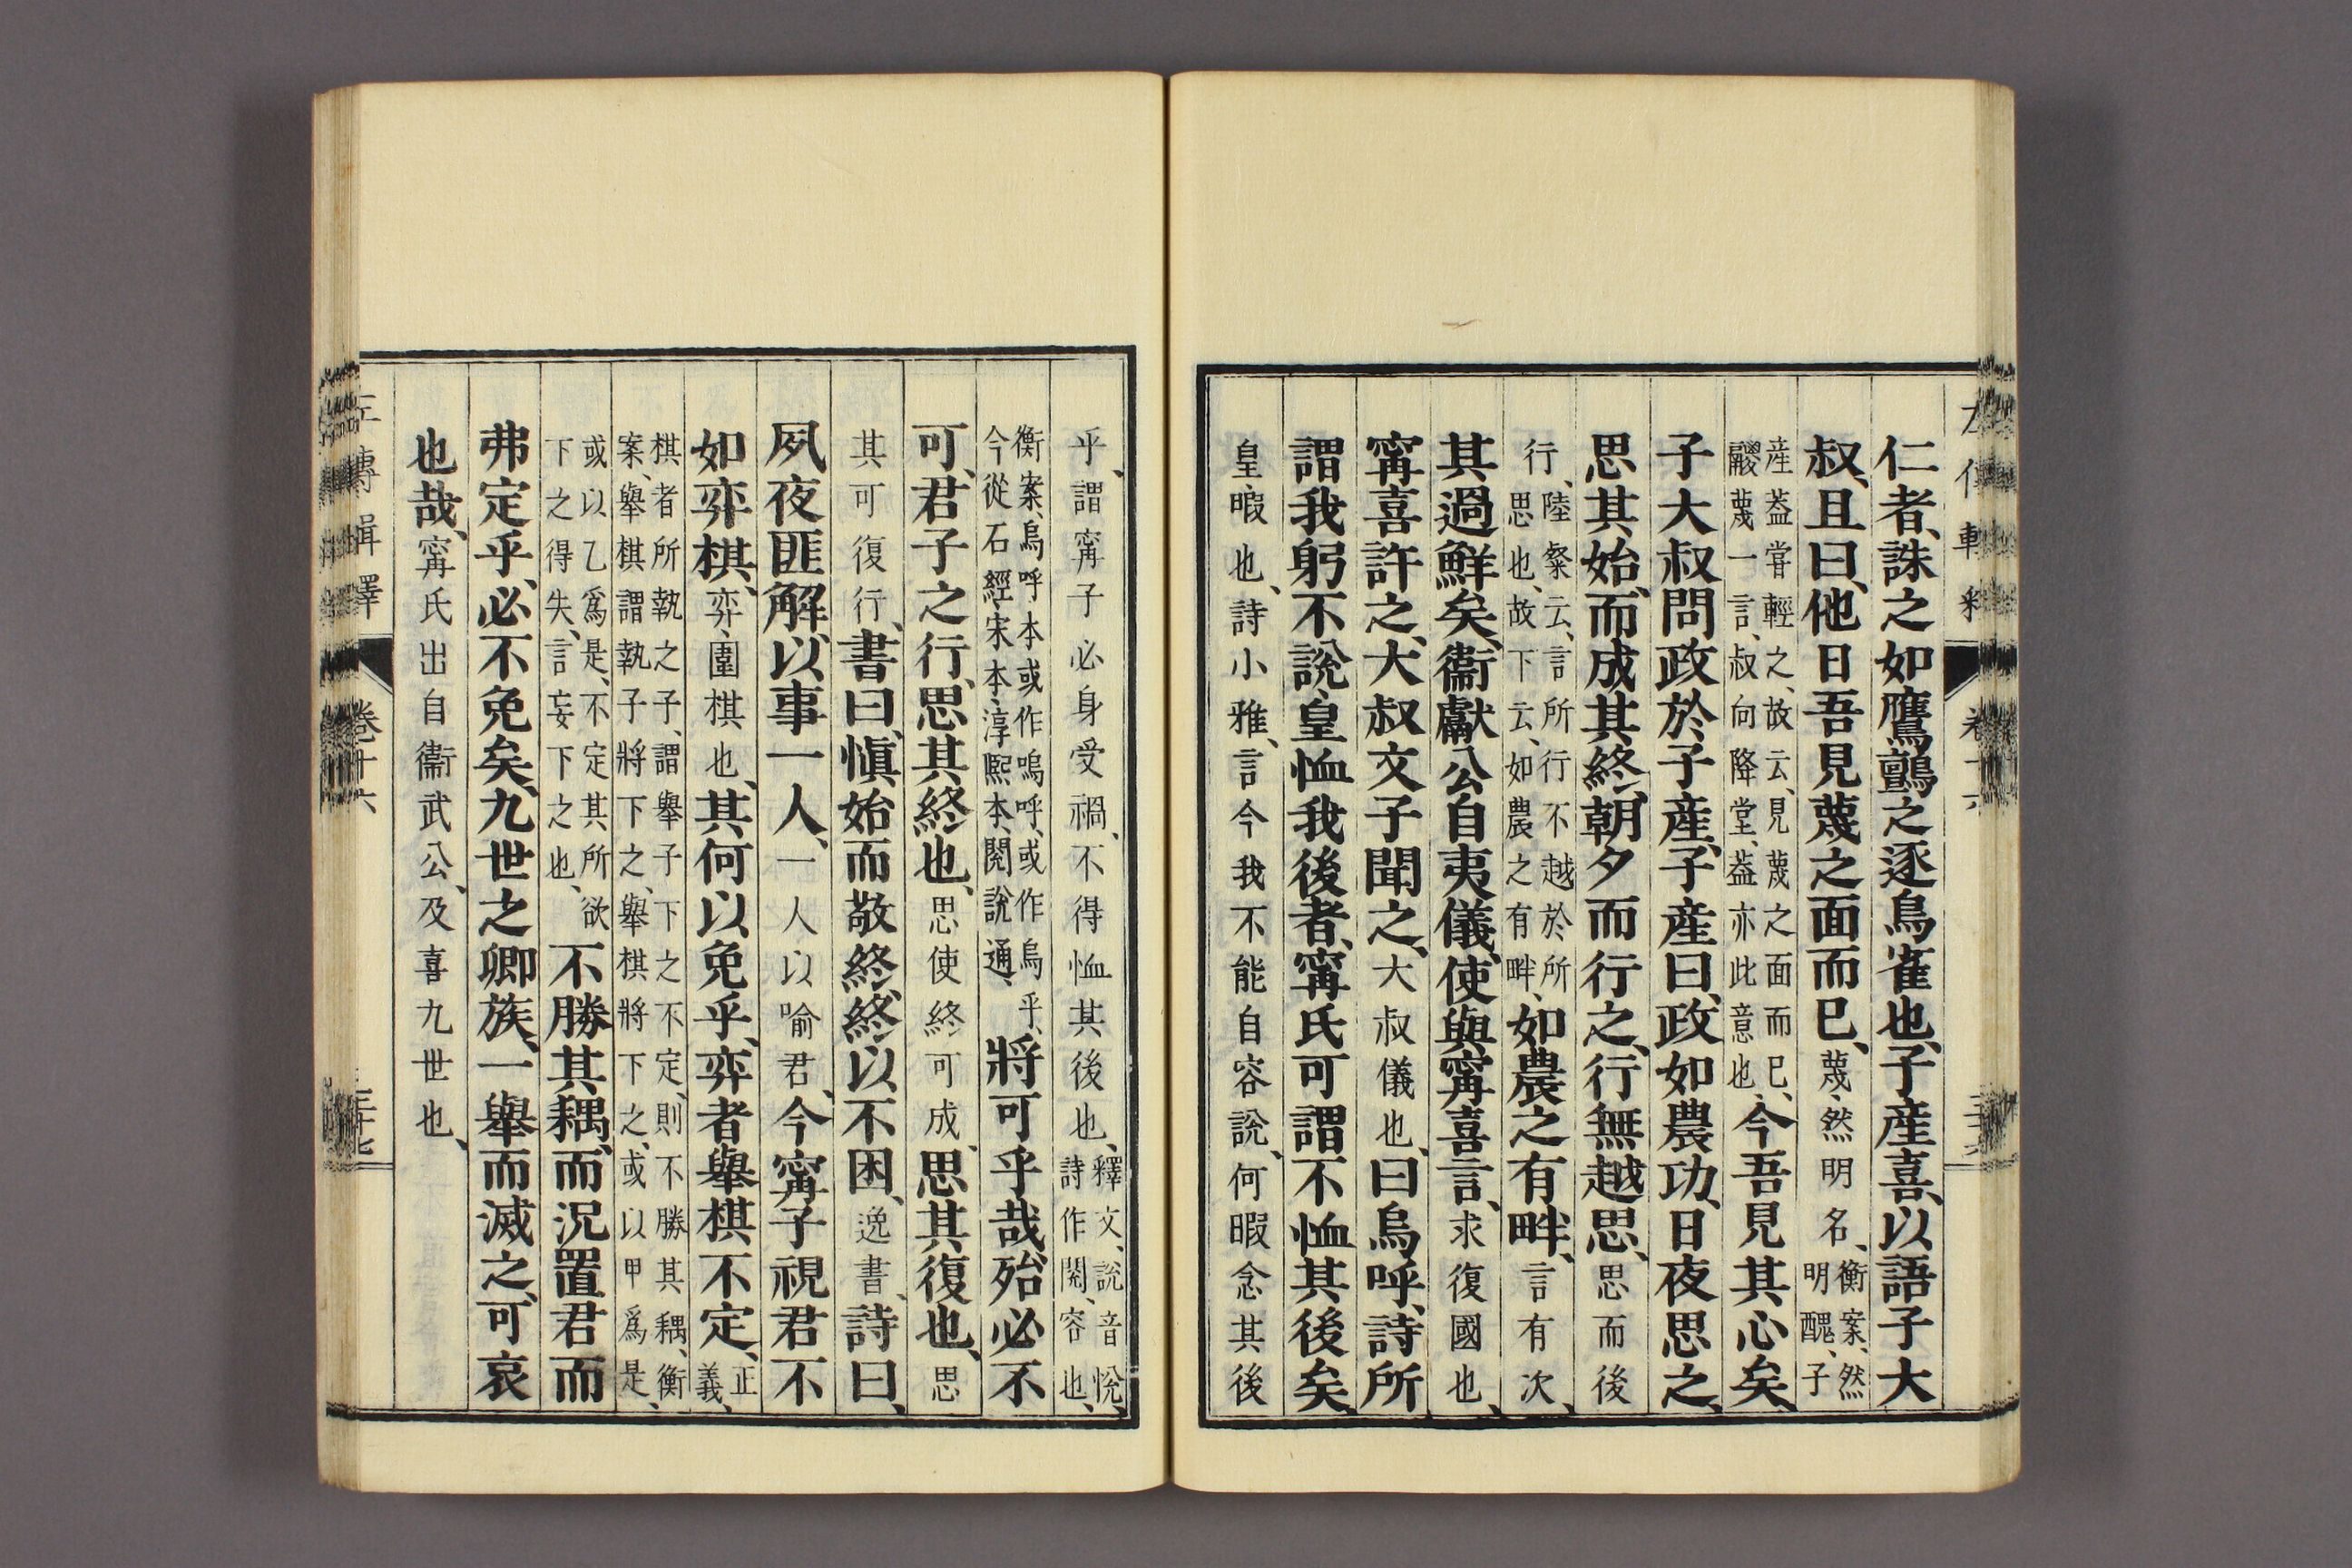 仁者、誅之如鷹鸇之逐鳥雀也、子產喜、以語子大
叔、且曰、他日吾見蔑之面而已、蔑、然明名、衡案、然明醜、子
產蓋嘗輕之、故云、見蔑之面而已、鬷蔑一言、叔向降堂、蓋亦此意也、今吾見其心矣、
子大叔問政於子產、子產曰、政如農功、日夜思之、
思其始、而成其終、朝夕而行之、行無越思、思而後
行、陸粲云、言所行不越於所思也、故下云、如農之有畔、如農之有畔、言有次、
其過鮮矣、衞獻公自夷儀、使與甯喜言、求復國也、
甯喜許之、大叔文子聞之、大叔儀也、曰烏呼、詩所
謂我躬不說、皇恤我後者、甯氏可謂不恤其後矣、
皇、暇也、詩小雅、言今我不能自容說、何暇念其後
乎、謂甯子必身受禍、不得恤其後也、釋文、說音悅、詩作閱、容也、
衡案、烏呼、本或作嗚呼、或作烏乎、今從石經、宋本、淳熙本、閱說通、將可乎哉、殆必不
可、君子之行、思其終也、思使終可成、思其復也、思
其可復行、書曰、愼始而敬終、終以不困、逸書、詩曰、
夙夜匪解、以事一人、一人以喻君、今甯子視君不
如弈棋、弈、圍棋也、其何以免乎、弈者舉棋不定、正義、
棋者所執之子、謂舉子下之不定、則不勝其耦、衡案、舉棋謂執子將下之、舉棋將下之、或以甲爲是、
或以乙爲是、不定其所欲下之得失、言妄下之也、不勝其耦、而況置君而
弗定乎、必不免矣、九世之卿族、一舉而滅之、可哀
也哉、甯氏出自衞武公、及喜九世也、
左傳輯釋
卷十六